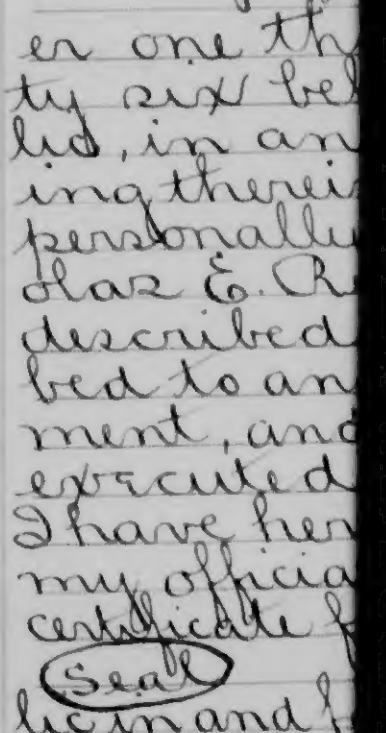 er one th
ty six bef
lic, in an
ing therei
personally
olas E. R
described
bed to an
ment, and
executed
I have her
my officia
certificate f
Seal
lic in and f